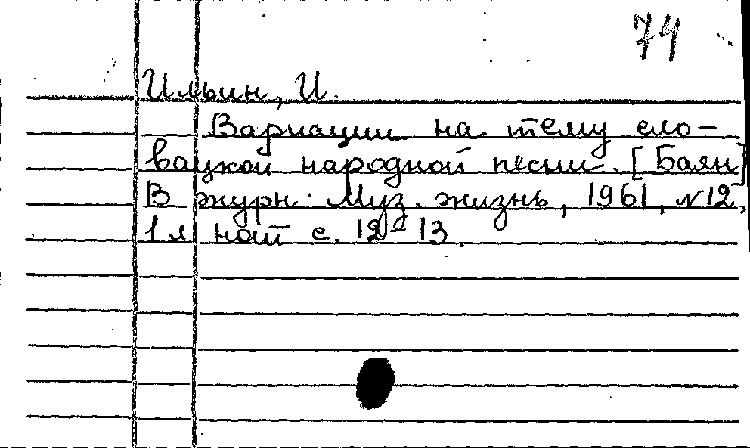 74
Ильин, И.
Вариации на тему сло-
вацкой народной песни. [Баян]
В журн. Муз. жизнь, 1961, №12,
1 л нот с. 12-13.